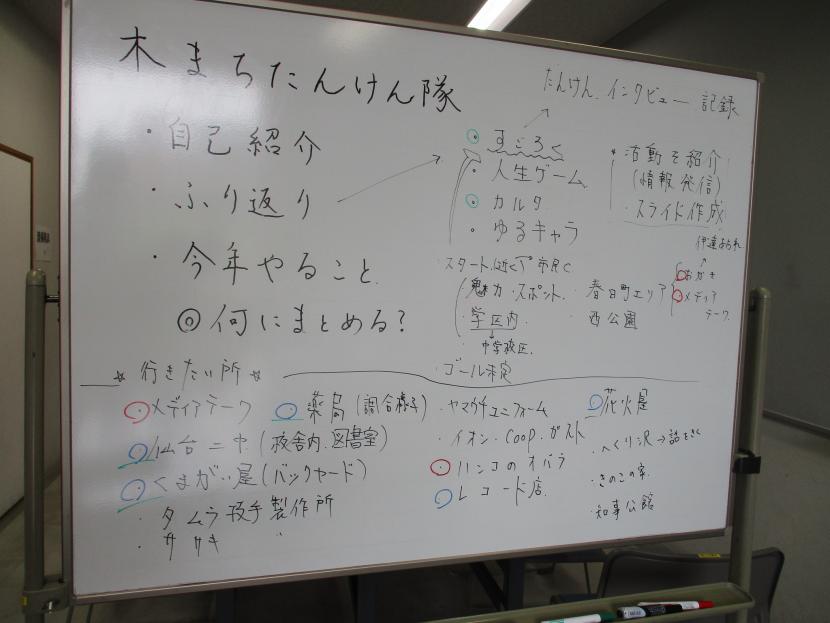 木まちたんけん隊
・自己紹介
・ふり返り
・今年やること
◎何にまとめる?
たんけん.インタビュー 記録
すごろく
・人生ゲーム
カルタ
・ゆるキャラ
*活動を紹介
(情報発信)
・スライド作成
スタート
魅力・スポット.
学区内
中学校区.
・ゴール未定
・春日町エリア
・西公園
伊達あられ
おかき
メディア
テーク.
☆行きたい所☆
メディアテーク
仙台二中(校舎内.図書室)
くまがい屋(バックヤード)
・タムラ
製作所
・ササキ 〃
薬局(調合様子)
・ヤマウチユニフォーム
・イオン.COOP.ガスト
ハンコのオバラ
レコード店.
花火屋
・へくり沢→話をきく
・きのこの家.
・知事公館